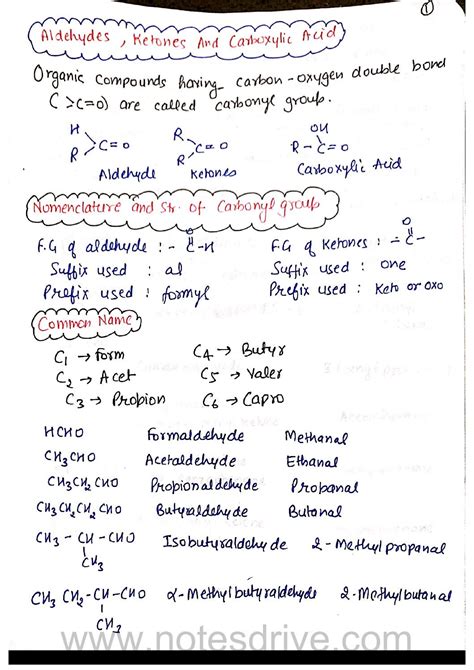 ①
Aldehydes, Ketones And Carboxylic Acid
Organic compounds having carbon-oxygen double bond
( >C=O) are called carbonyl group.
H R OH
>C=O >C=O R-C=O
R R
Aldehyde Ketones Carboxylic Acid
Nomenclature and Str. of Carbonyl group
O O
F.G of aldehyde : - C -H F.G of Ketones : - C -
Suffix used : al Suffix used : one
Prefix used : formyl Prefix used : Keto or oxo
Common Name
C₁ → Form C₄ → Butyr
C₂ → Acet C₅ → Valer
C₃ → Propion C₆ → Capro
HCHO Formaldehyde Methanal
CH₃CHO Acetaldehyde Ethanal
CH₃CH₂CHO Propionaldehyde Propanal
CH₃CH₂CH₂CHO Butyraldehyde Butanal
CH₃ - CH - CHO Isobutyraldehyde 2-Methylpropanal
CH₃
CH₃ CH₂-CH-CHO α-Methylbutyraldehyde 2-Methylbutanal
CH₃
www.notesdrive.com